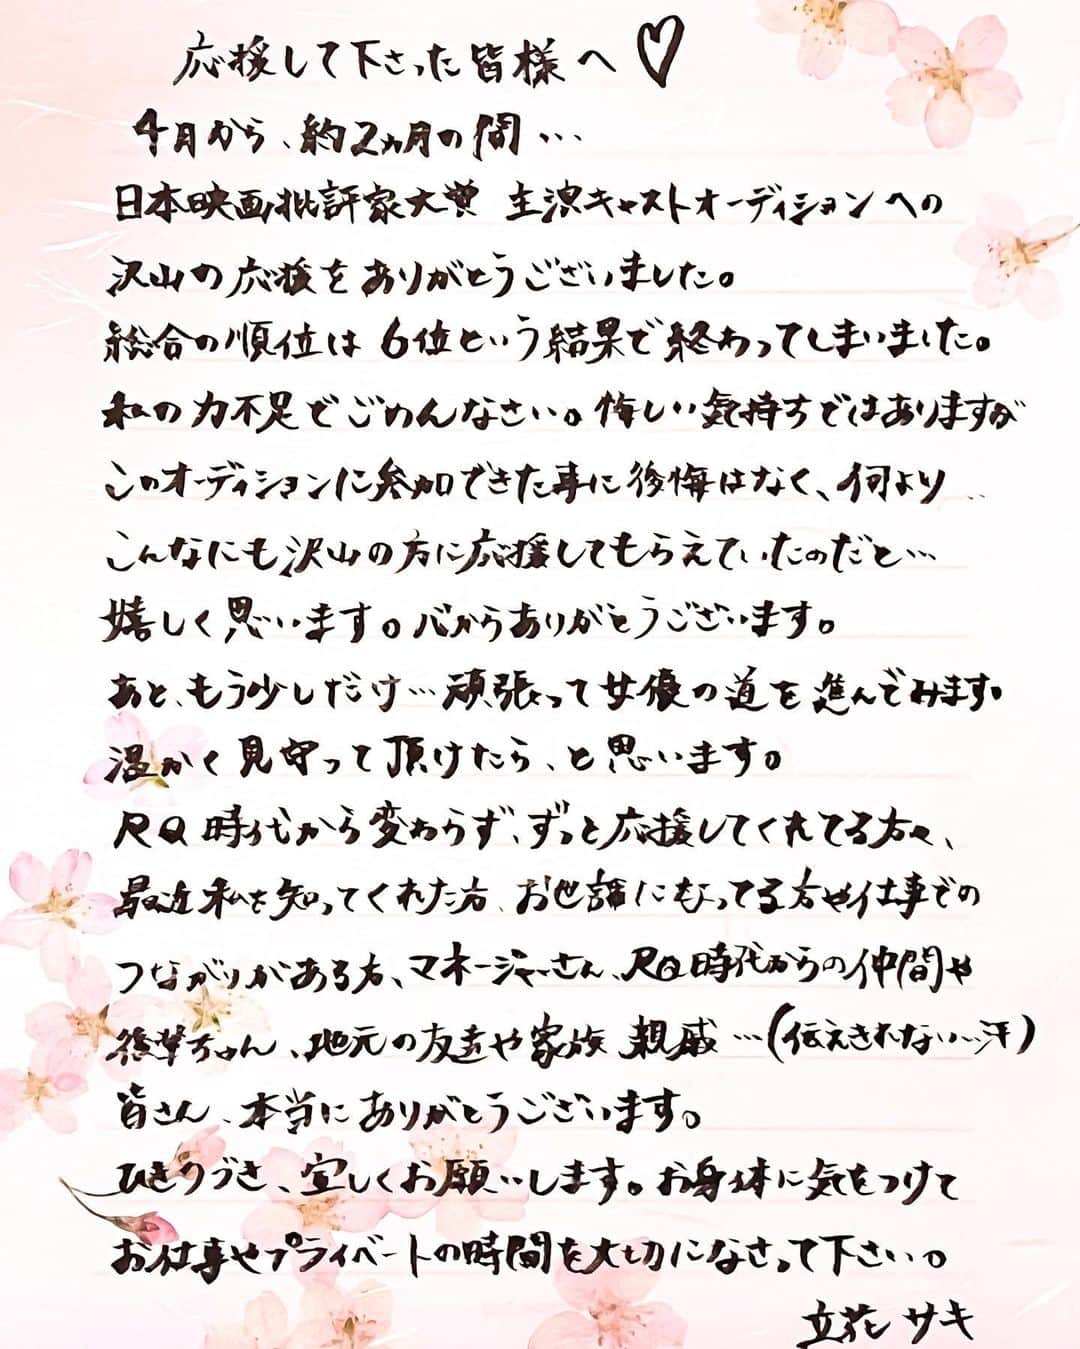 応援して下さった皆様へ♡
4月から、約2ヵ月の間…
日本映画批評家大賞 主演キャストオーディションへの
沢山の応援をありがとうございました。
総合の順位は6位という結果で終わってしまいました。
私の力不足でごめんなさい。悔しい気持ちではありますが
このオーディションに参加できた事に後悔はなく、何より…
こんなにも沢山の方に応援してもらえていたのだと…
嬉しく思います。心からありがとうございます。
あと、もう少しだけ…頑張って女優の道を進んでみます。
温かく見守って頂けたら、と思います。
RQ時代から変わらず、ずっと応援してくれてる方々、
最近私を知ってくれた方、お世話になってる方や仕事での
つながりがある方、マネージャーさん、RQ時代からの仲間や
後輩ちゃん、地元の友達や家族 親戚…(伝えきれない…汗)
皆さん、本当にありがとうございます。
ひきつづき、宜しくお願いします。お身体に気をつけて
お仕事やプライベートの時間を大切になさって下さい。
立花 サキ